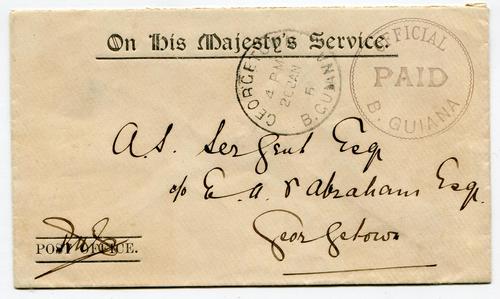 On His Majesty's Service.
GEORGETOWN
4 PM
26 JAN
5
B. GUIANA
OFFICIAL
PAID
B. GUIANA
A. S. Sergent Esq
c/o E. A. V Abraham Esq.
Georgetown
POST OFFICE.